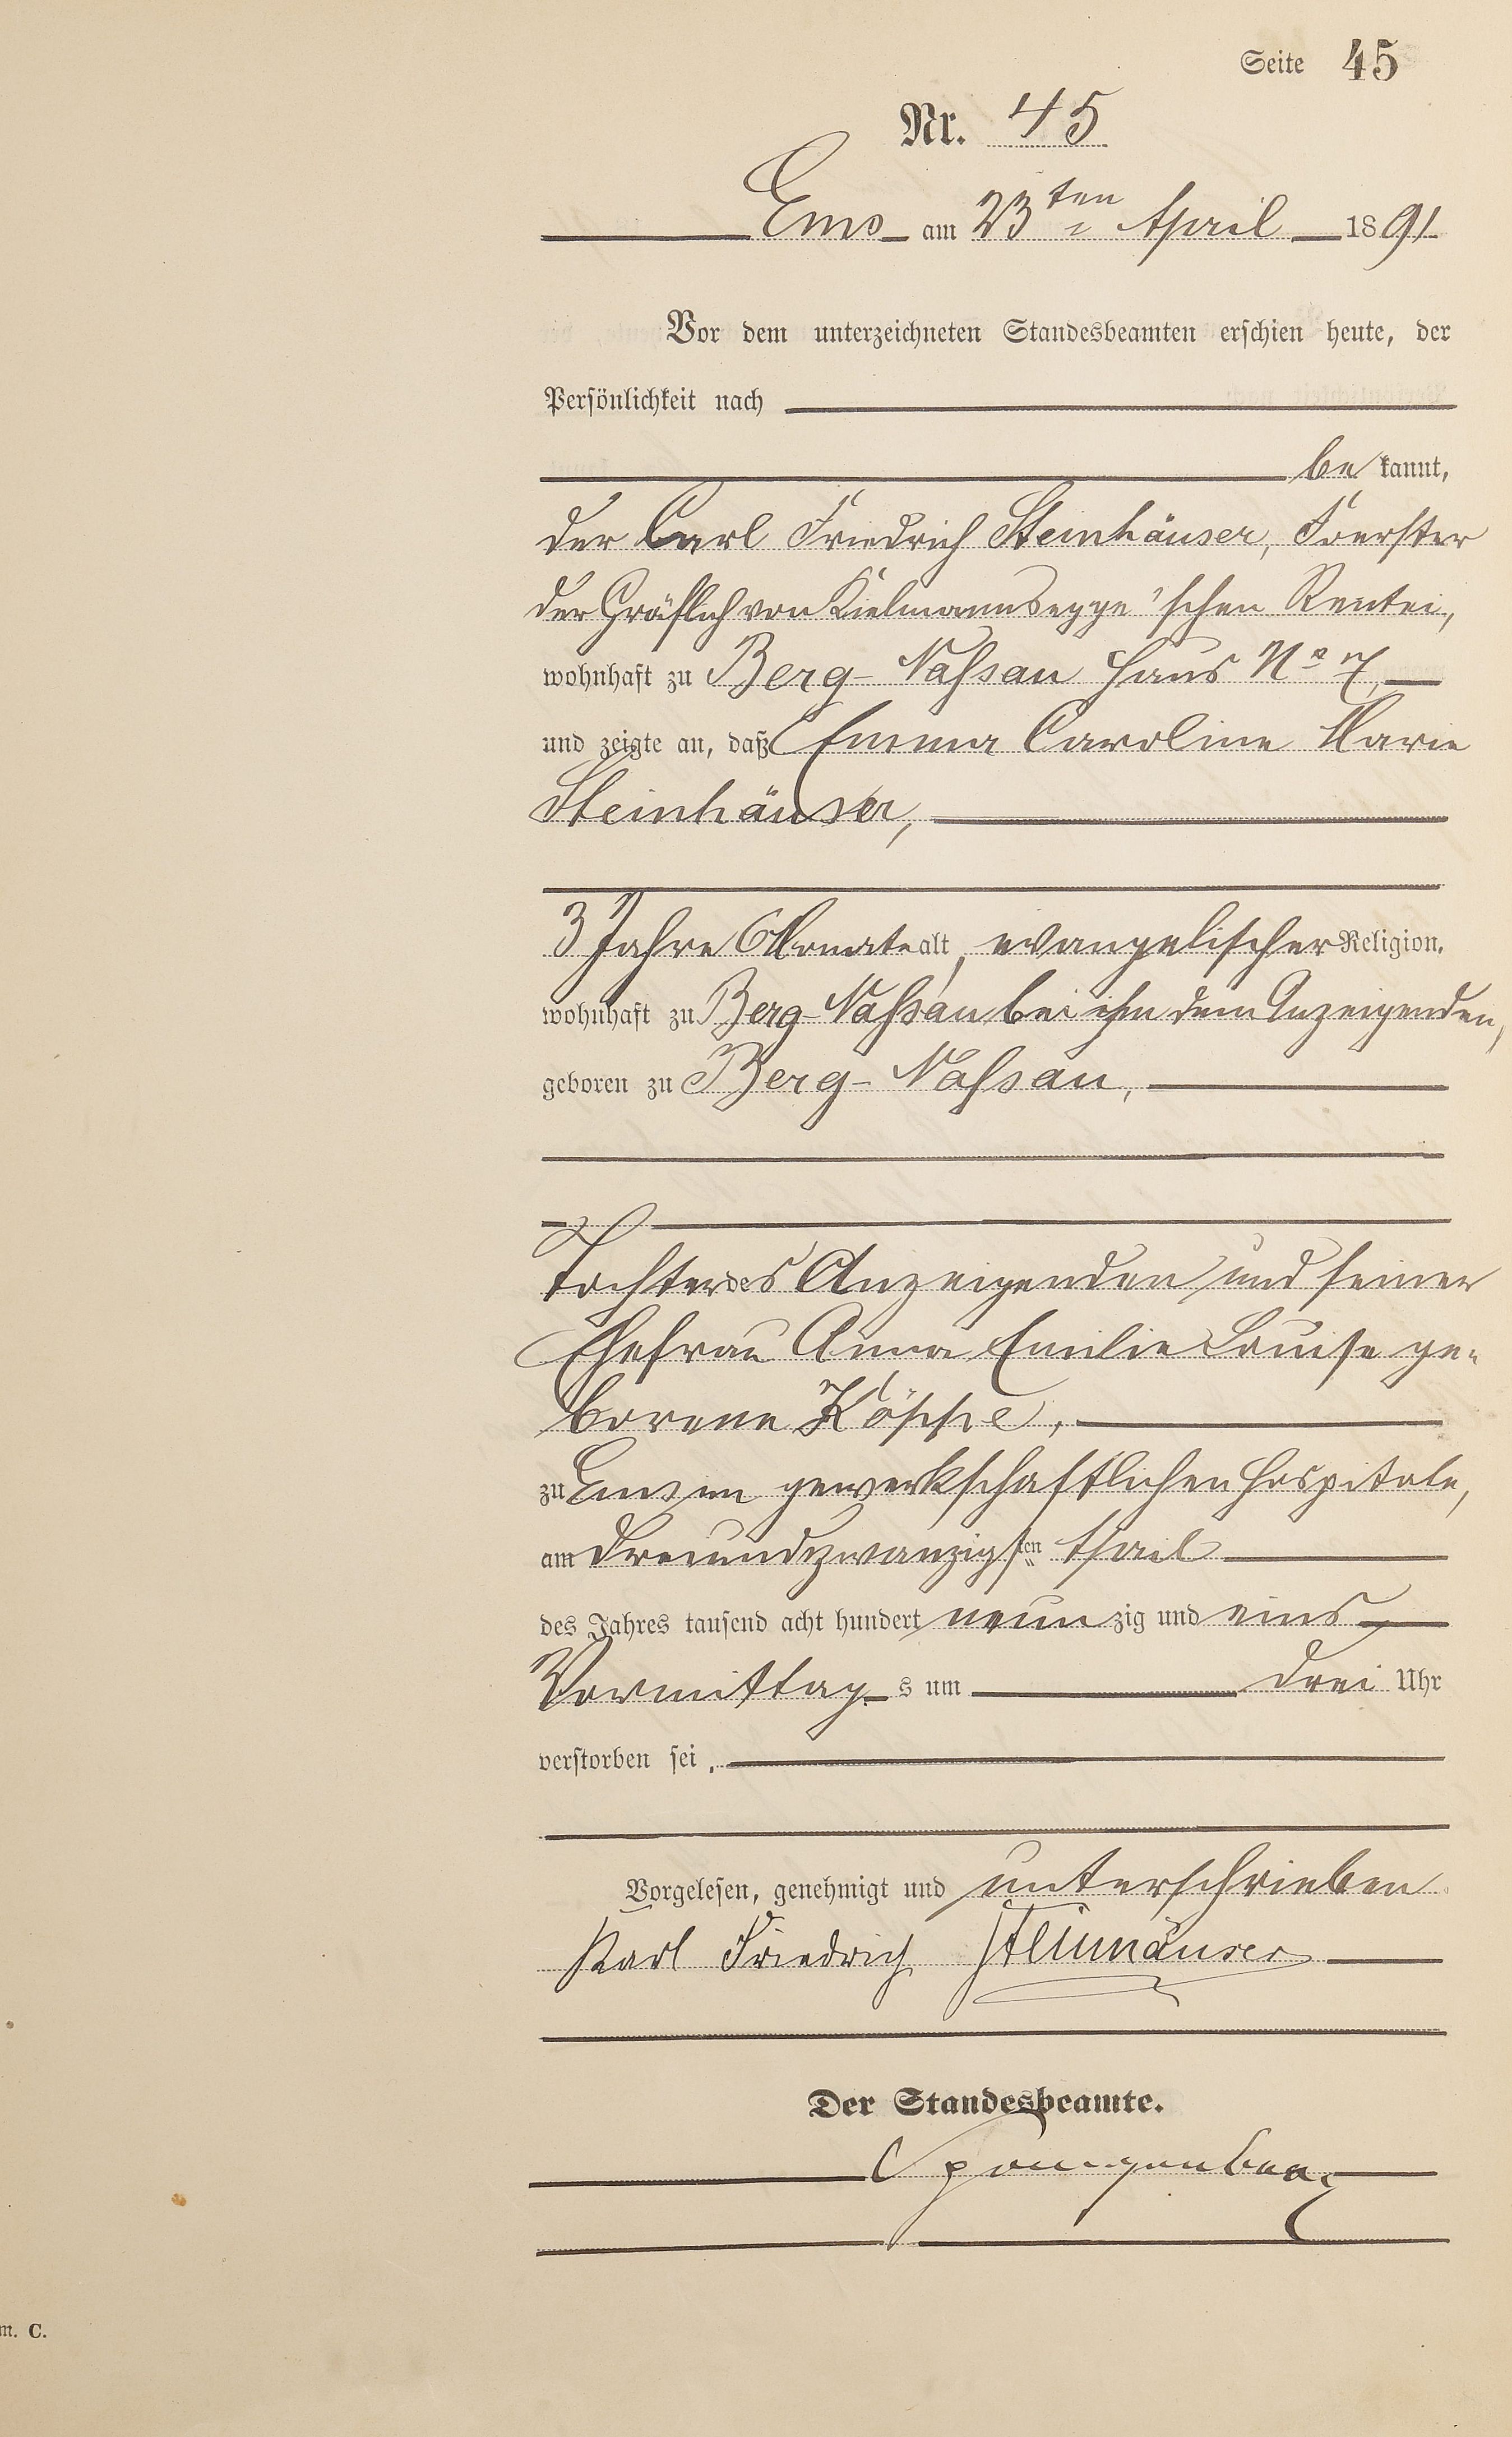 Seite 45
Nr. 45
Ems am 23ten April 1891
Vor dem unterzeichneten Standesbeamten erschien heute, der
Persönlichkeit nach
bekannt,
der Carl Friedrich Steinhäuser, Foerster
der Gräflich von Kielmannsegge'schen Rentei,
wohnhaft zu Berg-Nassau Haus No 7,
und zeigte an, daß Emma Caroline Marie
Steinhäuser,
3 Jahre 6 Monate alt, evangelischer Religion,
wohnhaft zu Berg-Nassau bei ihm dem Anzeigenden,
geboren zu Berg-Nassau,
Tochter des Anzeigenden und seiner
Ehefrau Anna Emilie Louise ge-
borene Köppe,
zu Ems im gewerkschaftlichen Hospitale,
am dreiundzwanzigsten April
des Jahres tausend acht hundert neunzig und eins
Vormittags um drei Uhr
verstorben sei.
Vorgelesen, genehmigt und unterschrieben
Karl Friedrich Steinhäuser
Der Standesbeamte.
m. C.